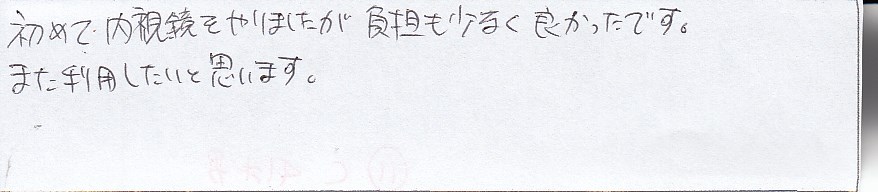 初めて内視鏡をやりましたが負担も少なく良かったです。
また利用したいと思います。